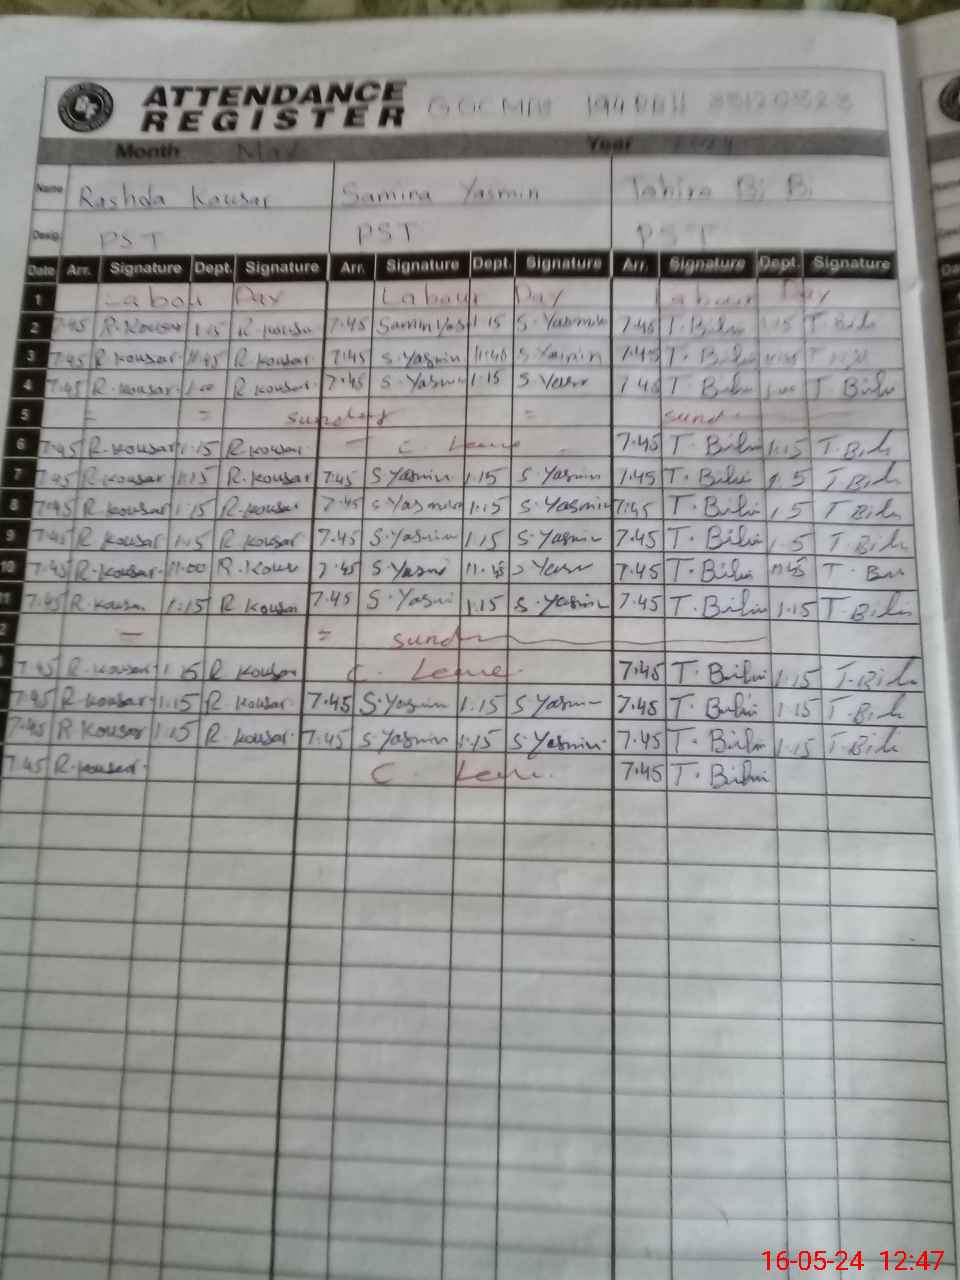 ATTENDANCE
REGISTER
Month May Year
Name Rashda Kousar Samina Yasmin Tahira Bi Bi
Desig PST PST PST
Date Arr. Signature Dept. Signature Arr. Signature Dept. Signature Arr. Signature Dept. Signature
1 Labour Day Labour Day Labour Day
2 7:45 R.Kousar 1:15 R.Kousar 7:45 1:15 S.Yasmin 7:45 T.Bibi 1:15 T.Bibi
3 7:45 R.Kousar 11:45 R.Kousar 7:45 S.Yasmin S.Yasmin 7:45 T.Bibi T.Bibi
4 7:45 R.Kousar 1:00 R.Kousar 7:45 S.Yasmin 1:15 7:45 T.Bibi T.Bibi
5 - = Sunday = Sund
6 7:45 R.Kousar 1:15 R.Kousar - C Leave 7.45 T.Bibi 1:15 T.Bibi
7 7:45 R.Kousar 1:15 R.Kousar 7:45 S.Yasmin 1.15 S.Yasmin T.Bibi T.Bibi
8 7:45 R.Kousar 1:15 R.Kousar 7:45 S.Yasmin 1.15 S.Yasmin 7:45 T.Bibi T.Bibi
9 7:45 R.Kousar 1:15 R.Kousar 7.45 S.Yasmin 1.15 S.Yasmin 7.45 T.Bibi T.Bibi
10 7:45 R.Kousar 11:00 7:45 7.45 T.Bibi 11:45
7:45 R.Kousar 1:15 R.Kousar 7.45 S.Yasmin 1:15 S.Yasmin 7.45 T.Bibi 1.15 T.Bibi
- = Sund
7:45 R.Kousar 1:15 R Kousar C. Leave. 7.45 T.Bibi 1:15 T.Bibi
7:45 R.Kousar 1:15 R Kousar 7.45 S.Yasmin 1:15 S Yasmin 7.45 T.Bibi 1.15 T.Bibi
7:45 R.Kousar 1:15 R.Kousar 7.45 S.Yasmin 1:15 S.Yasmin 7.45 T.Bibi 1:15 T.Bibi
7:45 R.Kousar C. Leave. 7.45 T.Bibi
16-05-24 12:47